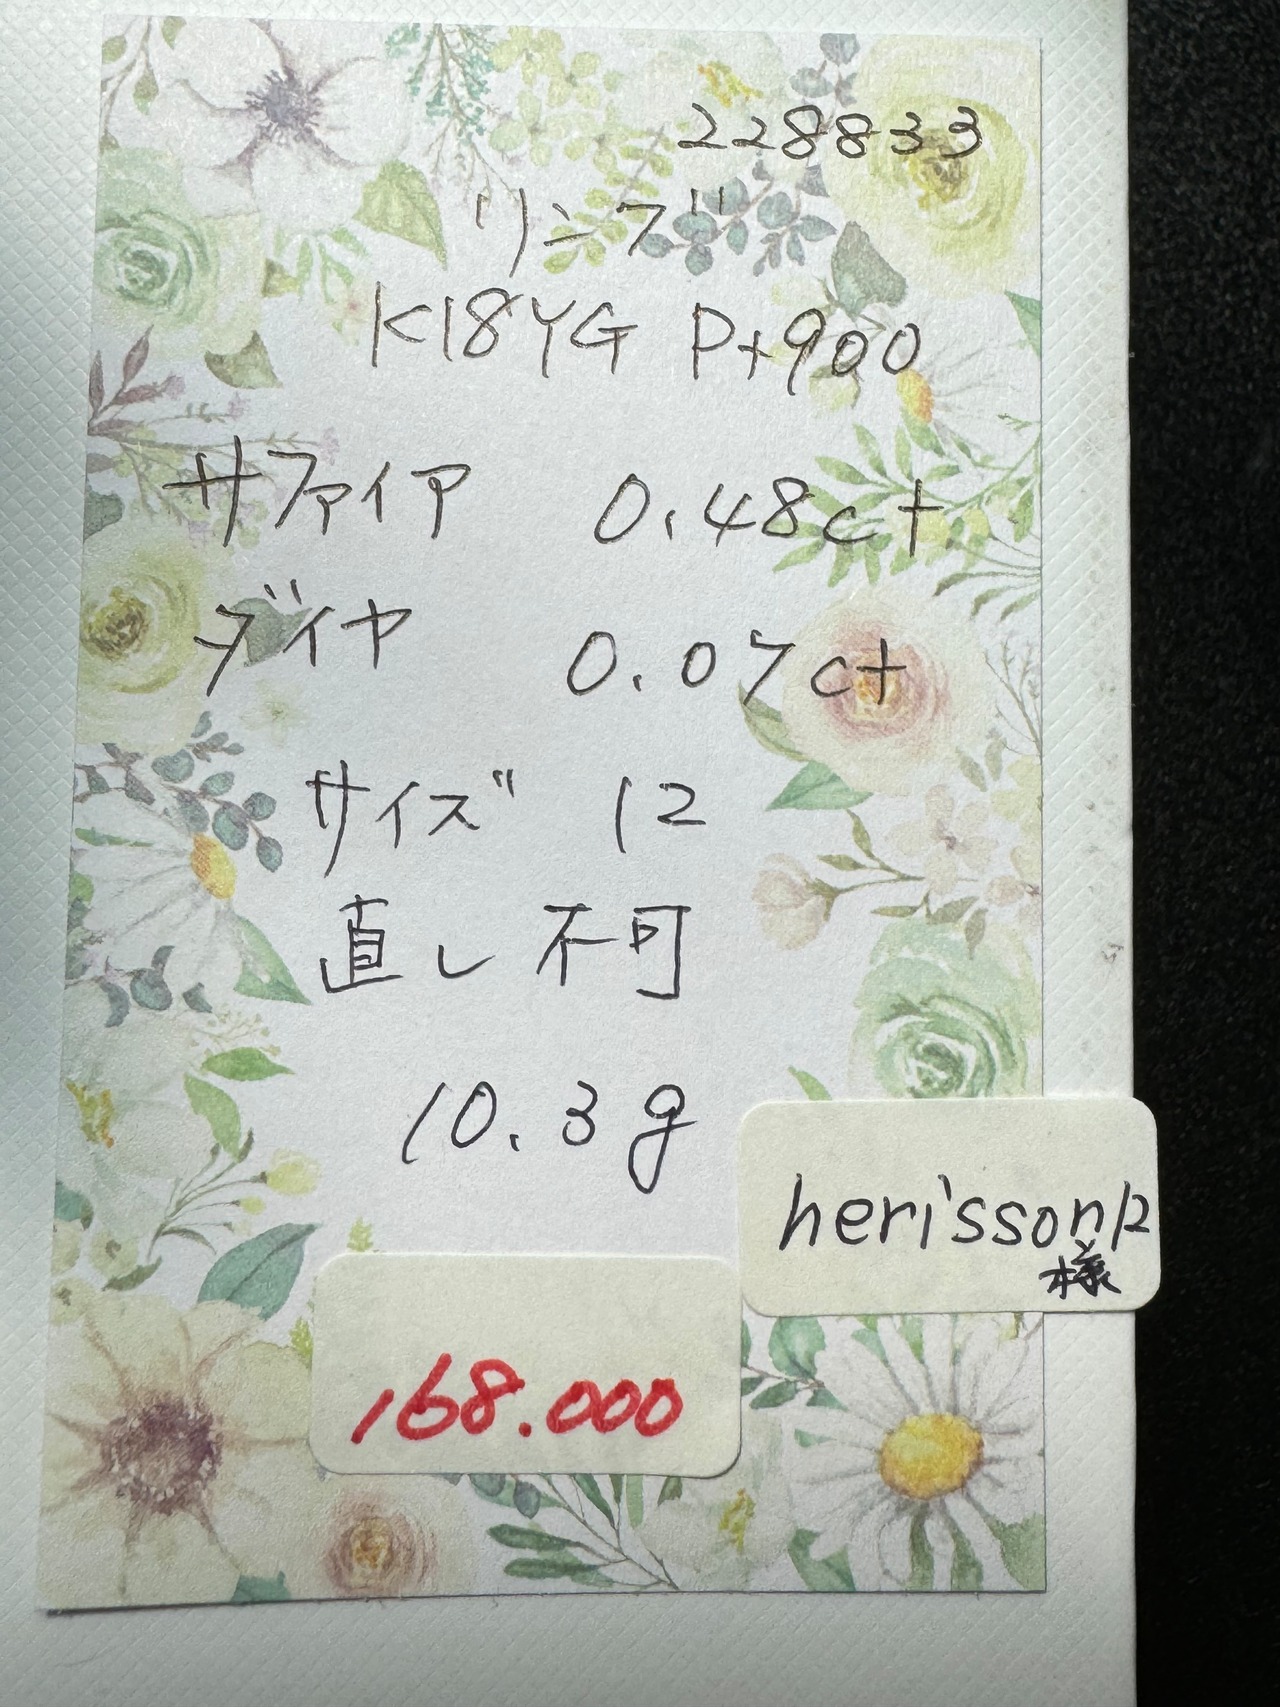 228833
リング
K18YG Pt900
サファイア 0.48ct
ダイヤ 0.07ct
サイズ 12
直し不可
10.3g
herissonp
様
168.000